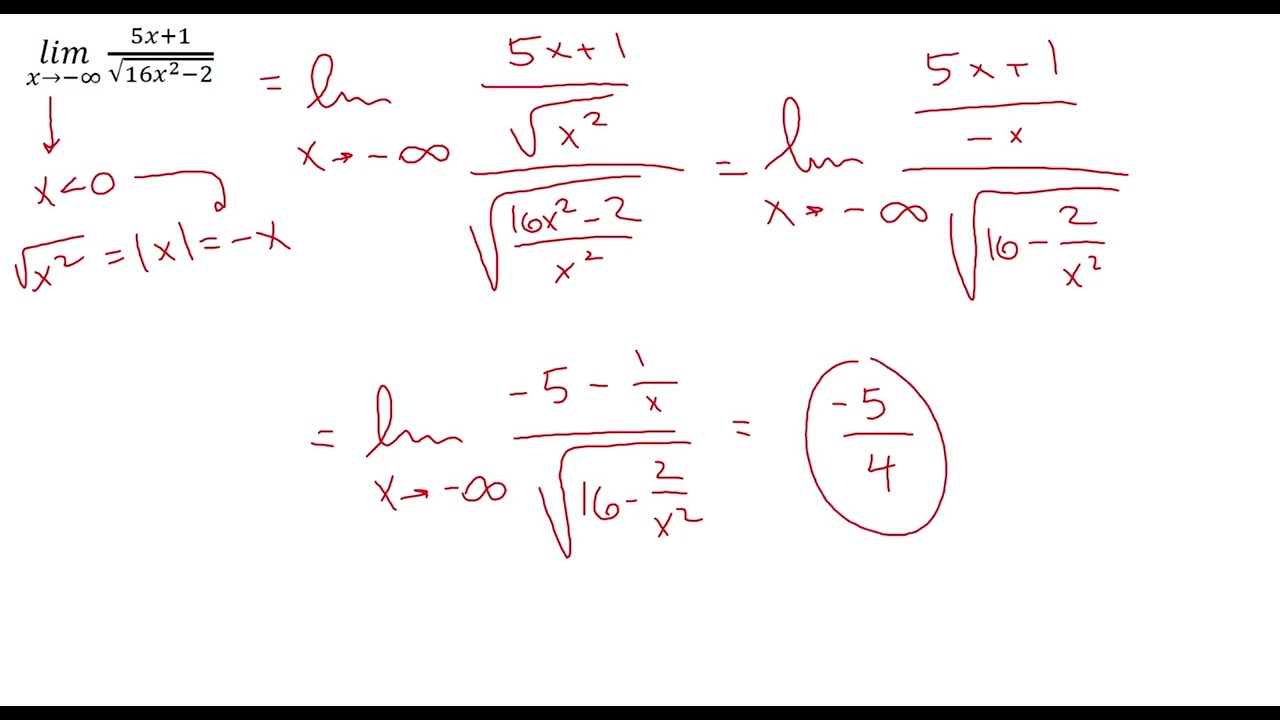 lim x→−∞ (5x+1)/√(16x²−2) = lim x→−∞ ((5x+1)/√(x²))/√((16x²−2)/x²) = lim x→−∞ ((5x+1)/(−x))/√(16−2/x²)
x<0
√(x²) = |x| = −x
= lim x→−∞ (−5−1/x)/√(16−2/x²) = −5/4